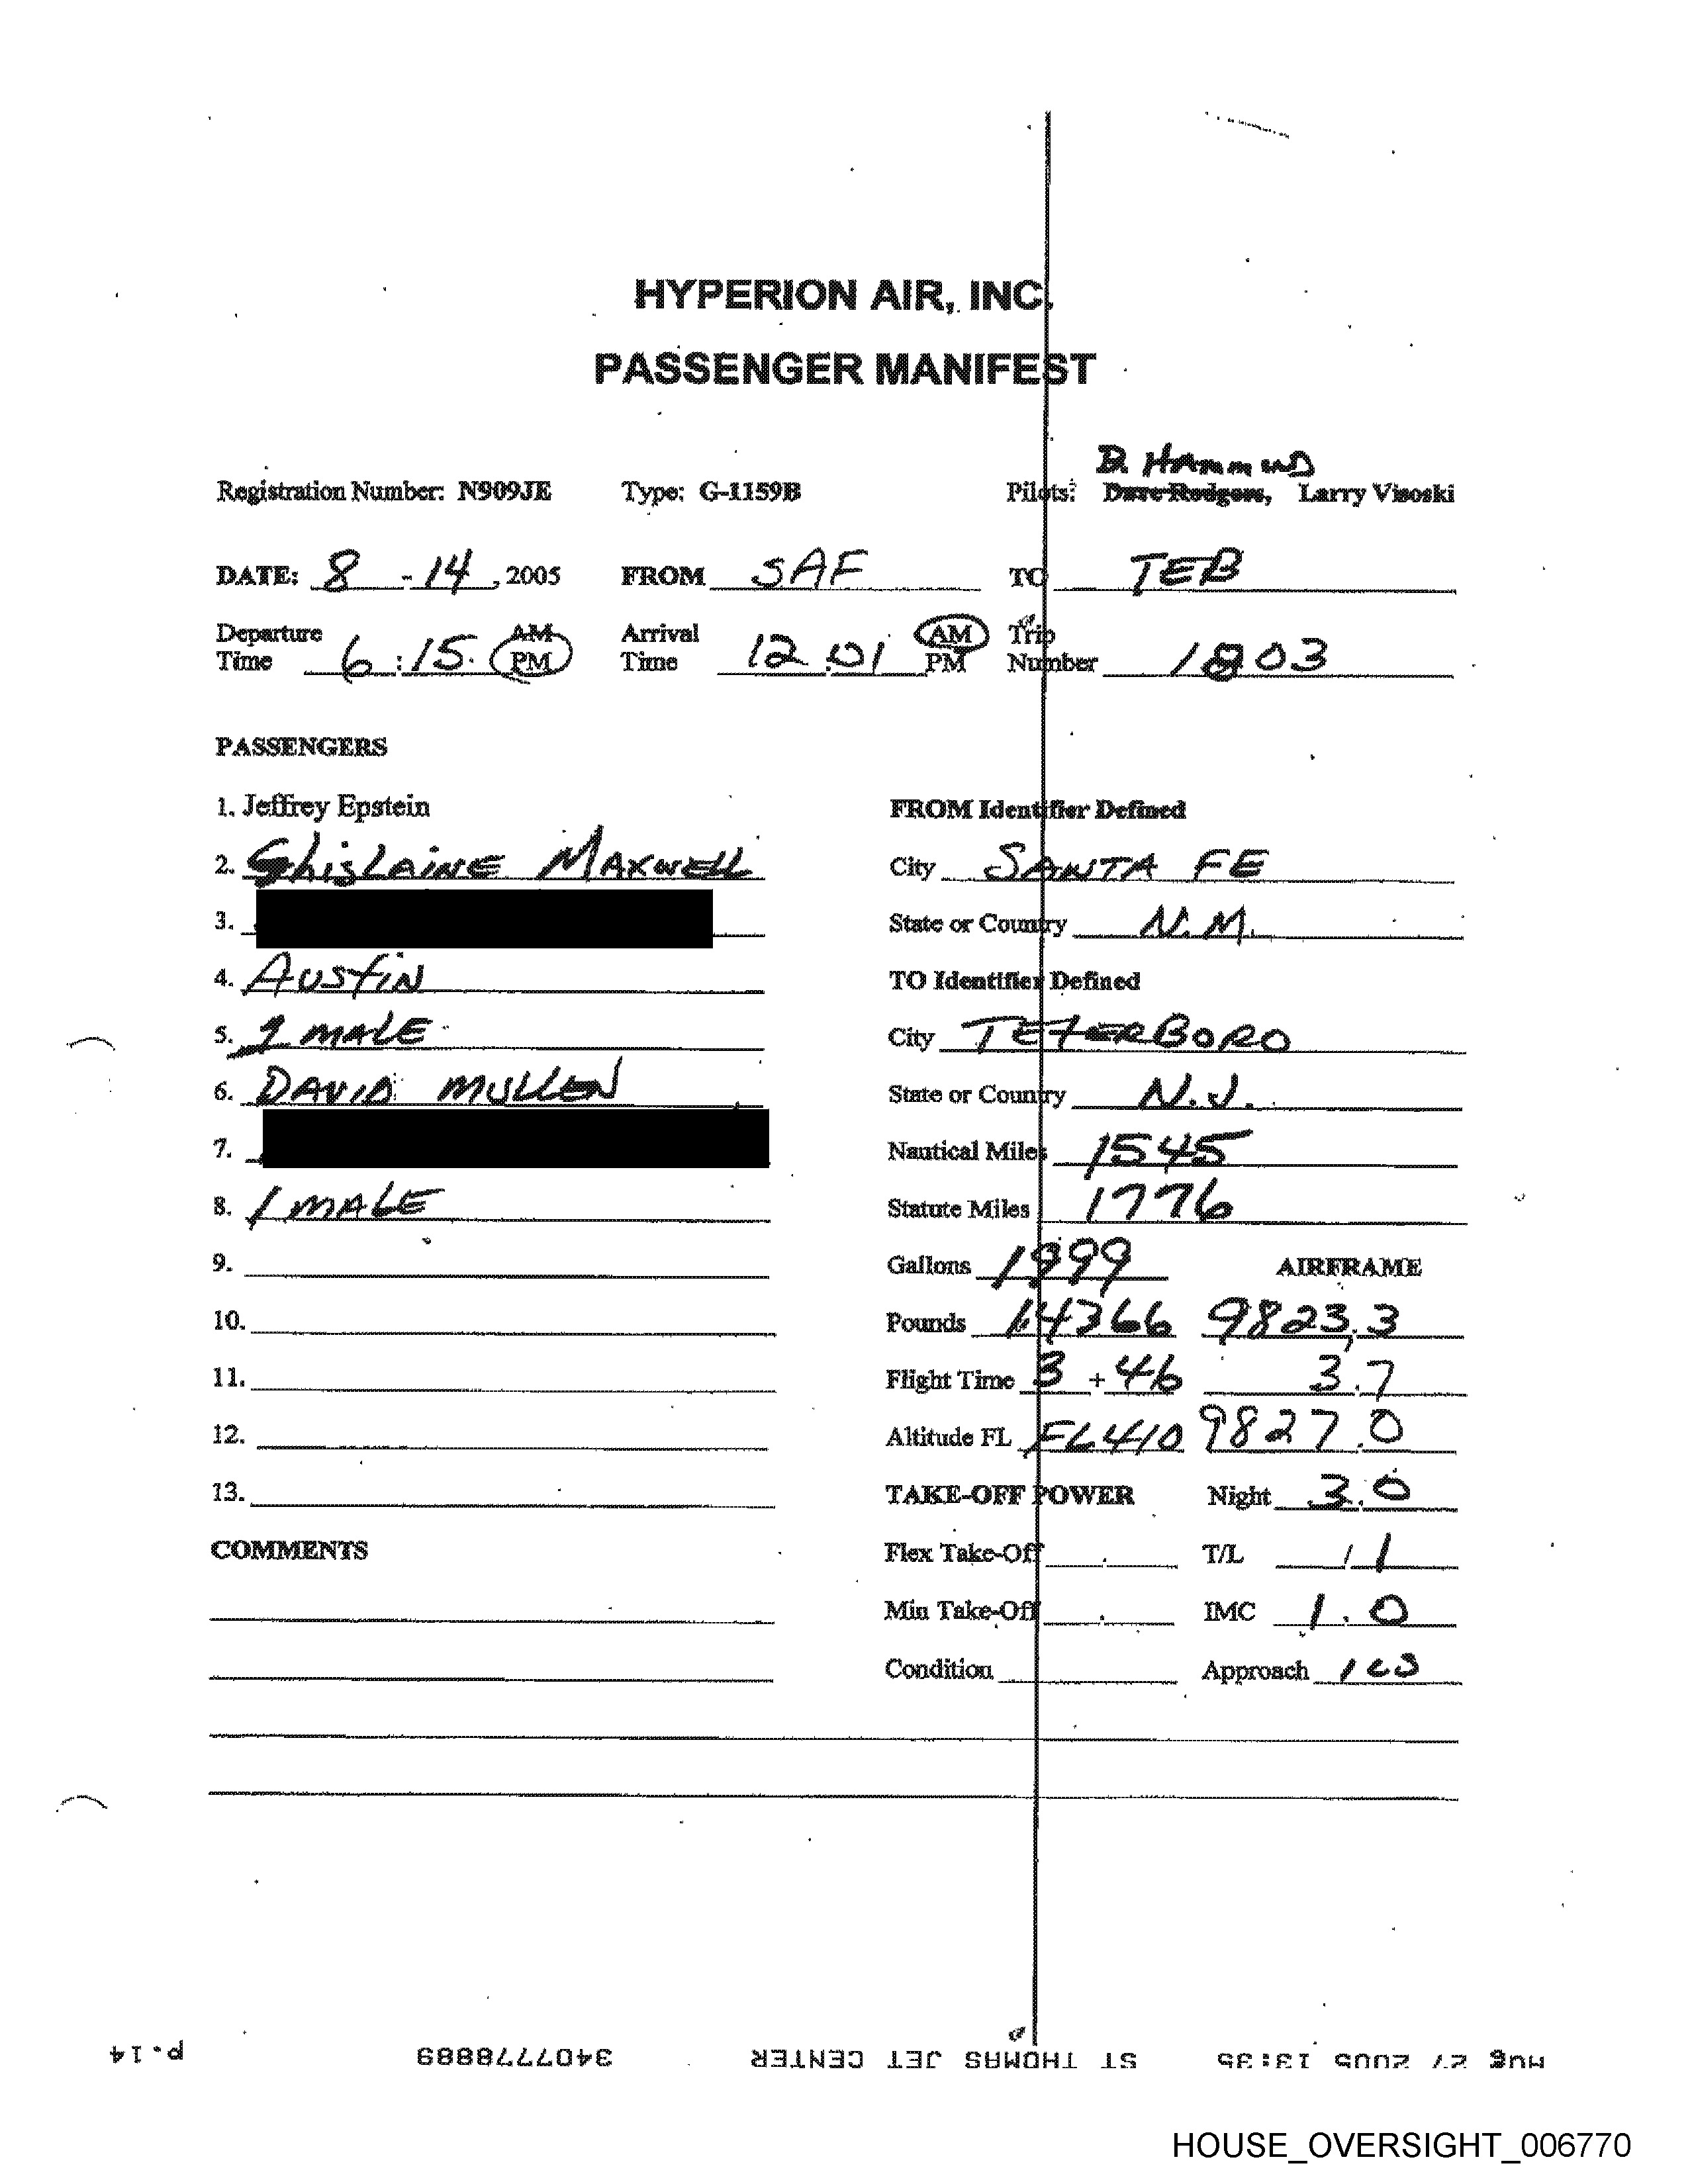 HYPERION AIR, INC.
PASSENGER MANIFEST
B. HAMMUD
Registration Number: N909JE Type: G-1159B Pilots: Dave Rodgers, Larry Visoski
DATE: 8 - 14, 2005 FROM SAF TO TEB
Departure Time 6:15 AM PM Arrival Time 12:01 AM PM Trip Number 1803
PASSENGERS
1. Jeffrey Epstein FROM Identifier Defined
2. GhisLAiNE MAXWELL City SANTA FE
3. State or Country N.M.
4. AustiN TO Identifier Defined
5. 1 MALE City TETERBORO
6. DAVID MULLEN State or Country N.J.
7. Nautical Miles 1545
8. 1 MALE Statute Miles 1776
9. Gallons 1999 AIRFRAME
10. Pounds 14366 9823.3
11. Flight Time 3 + 46 3.7
12. Altitude FL FL410 9827.0
13. TAKE-OFF POWER Night 3.0
COMMENTS Flex Take-Off . T/L / 1
Min Take-Off . IMC 1.0
Condition Approach ILS
Aug 27 2005 13:35 ST THOMAS JET CENTER 3407778889 p.14
HOUSE_OVERSIGHT_006770